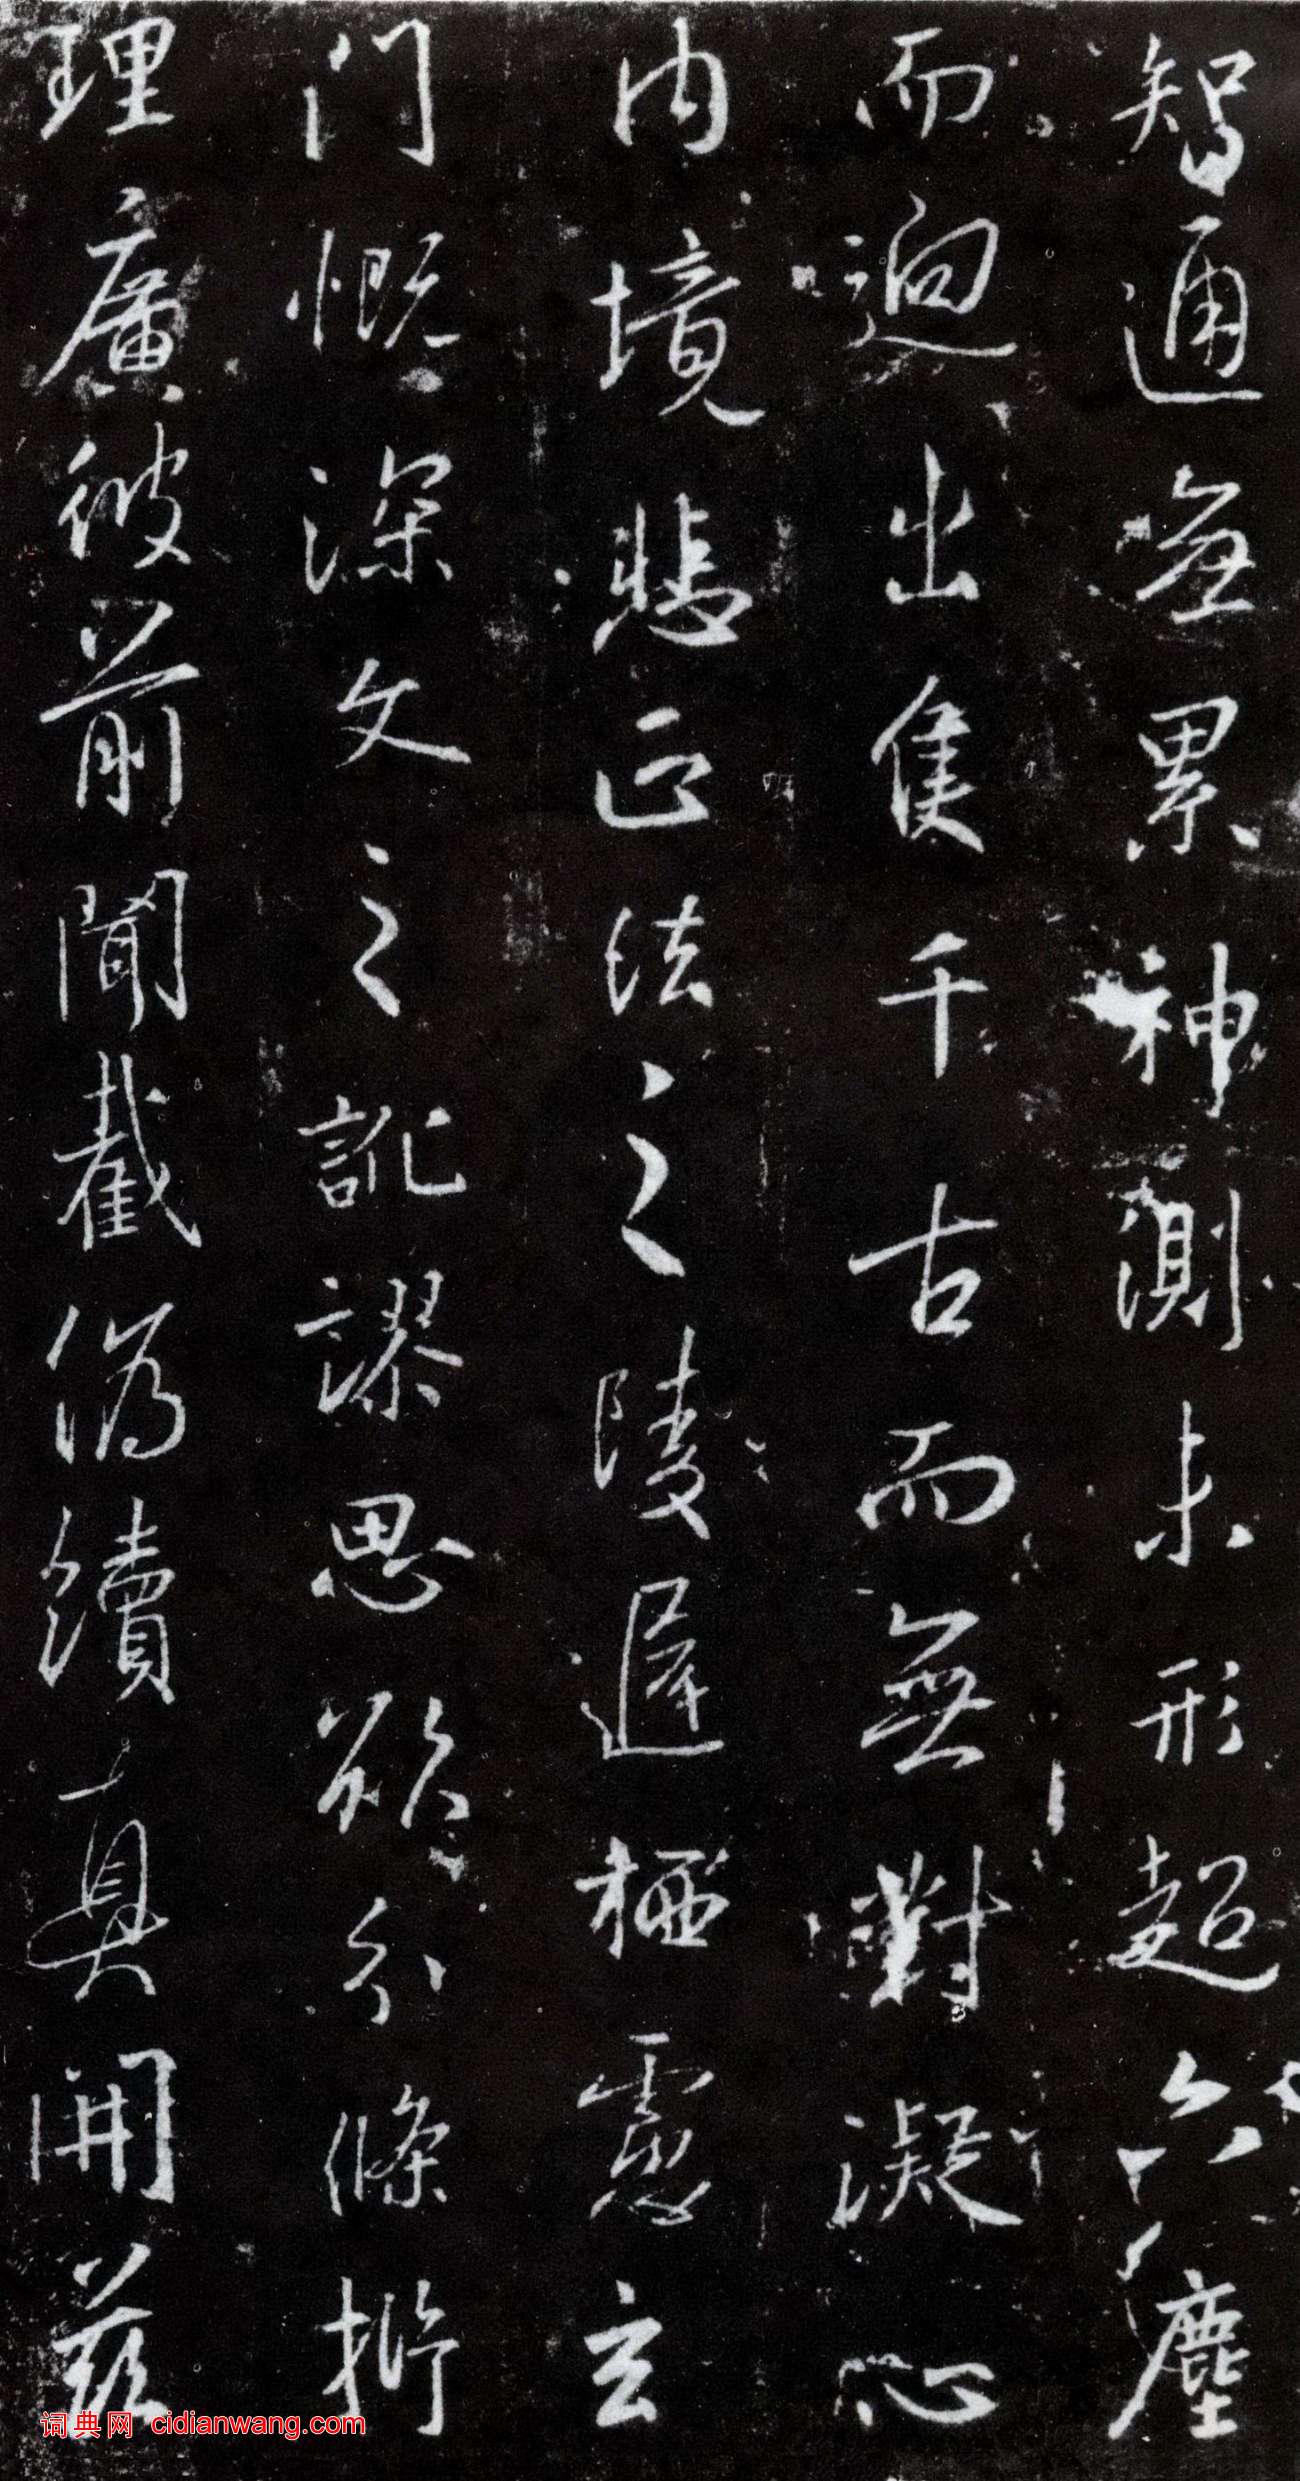 智通無累神測未形超六塵
而迥出隻千古而無對凝心
內境悲正法之陵遲栖慮玄
門慨深文之訛謬思欲分條析
理廣彼前聞截偽續真開茲
词典网 cidianwang.com